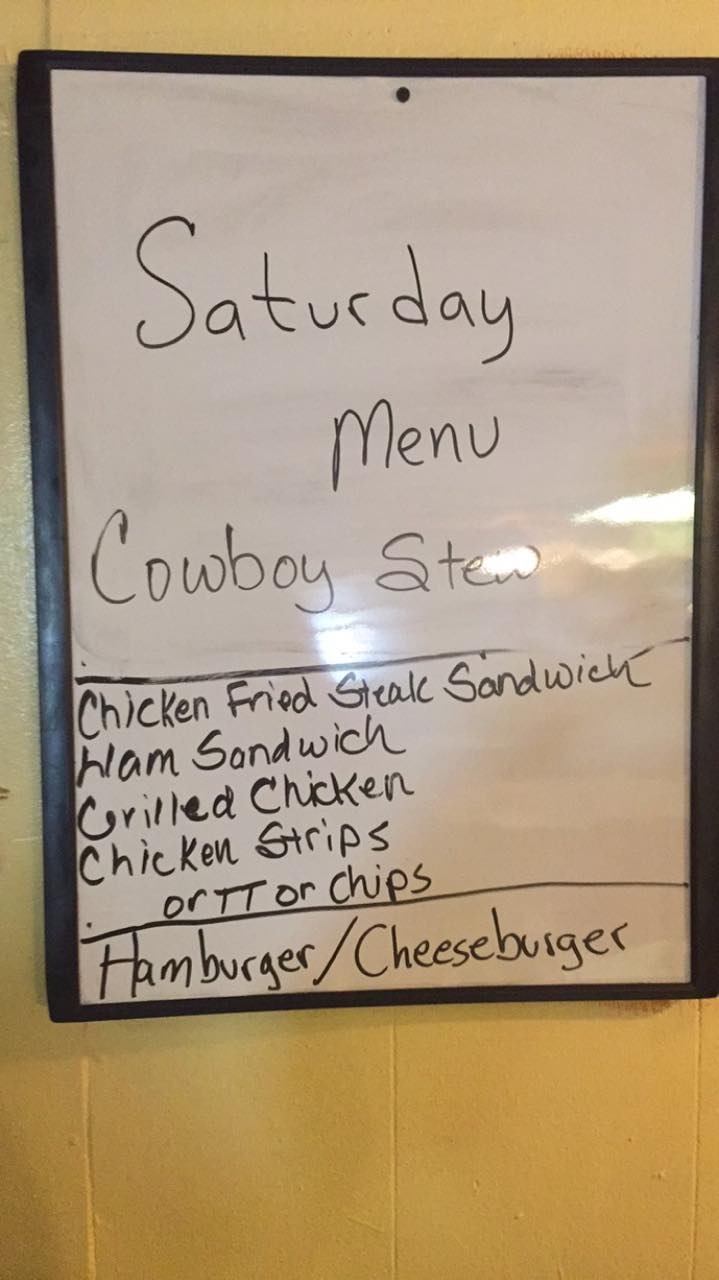 Saturday
Menu
Cowboy Stew
Chicken Fried Steak Sandwich
Ham Sandwich
Grilled Chicken
Chicken Strips
or TT or Chips
Hamburger/Cheeseburger